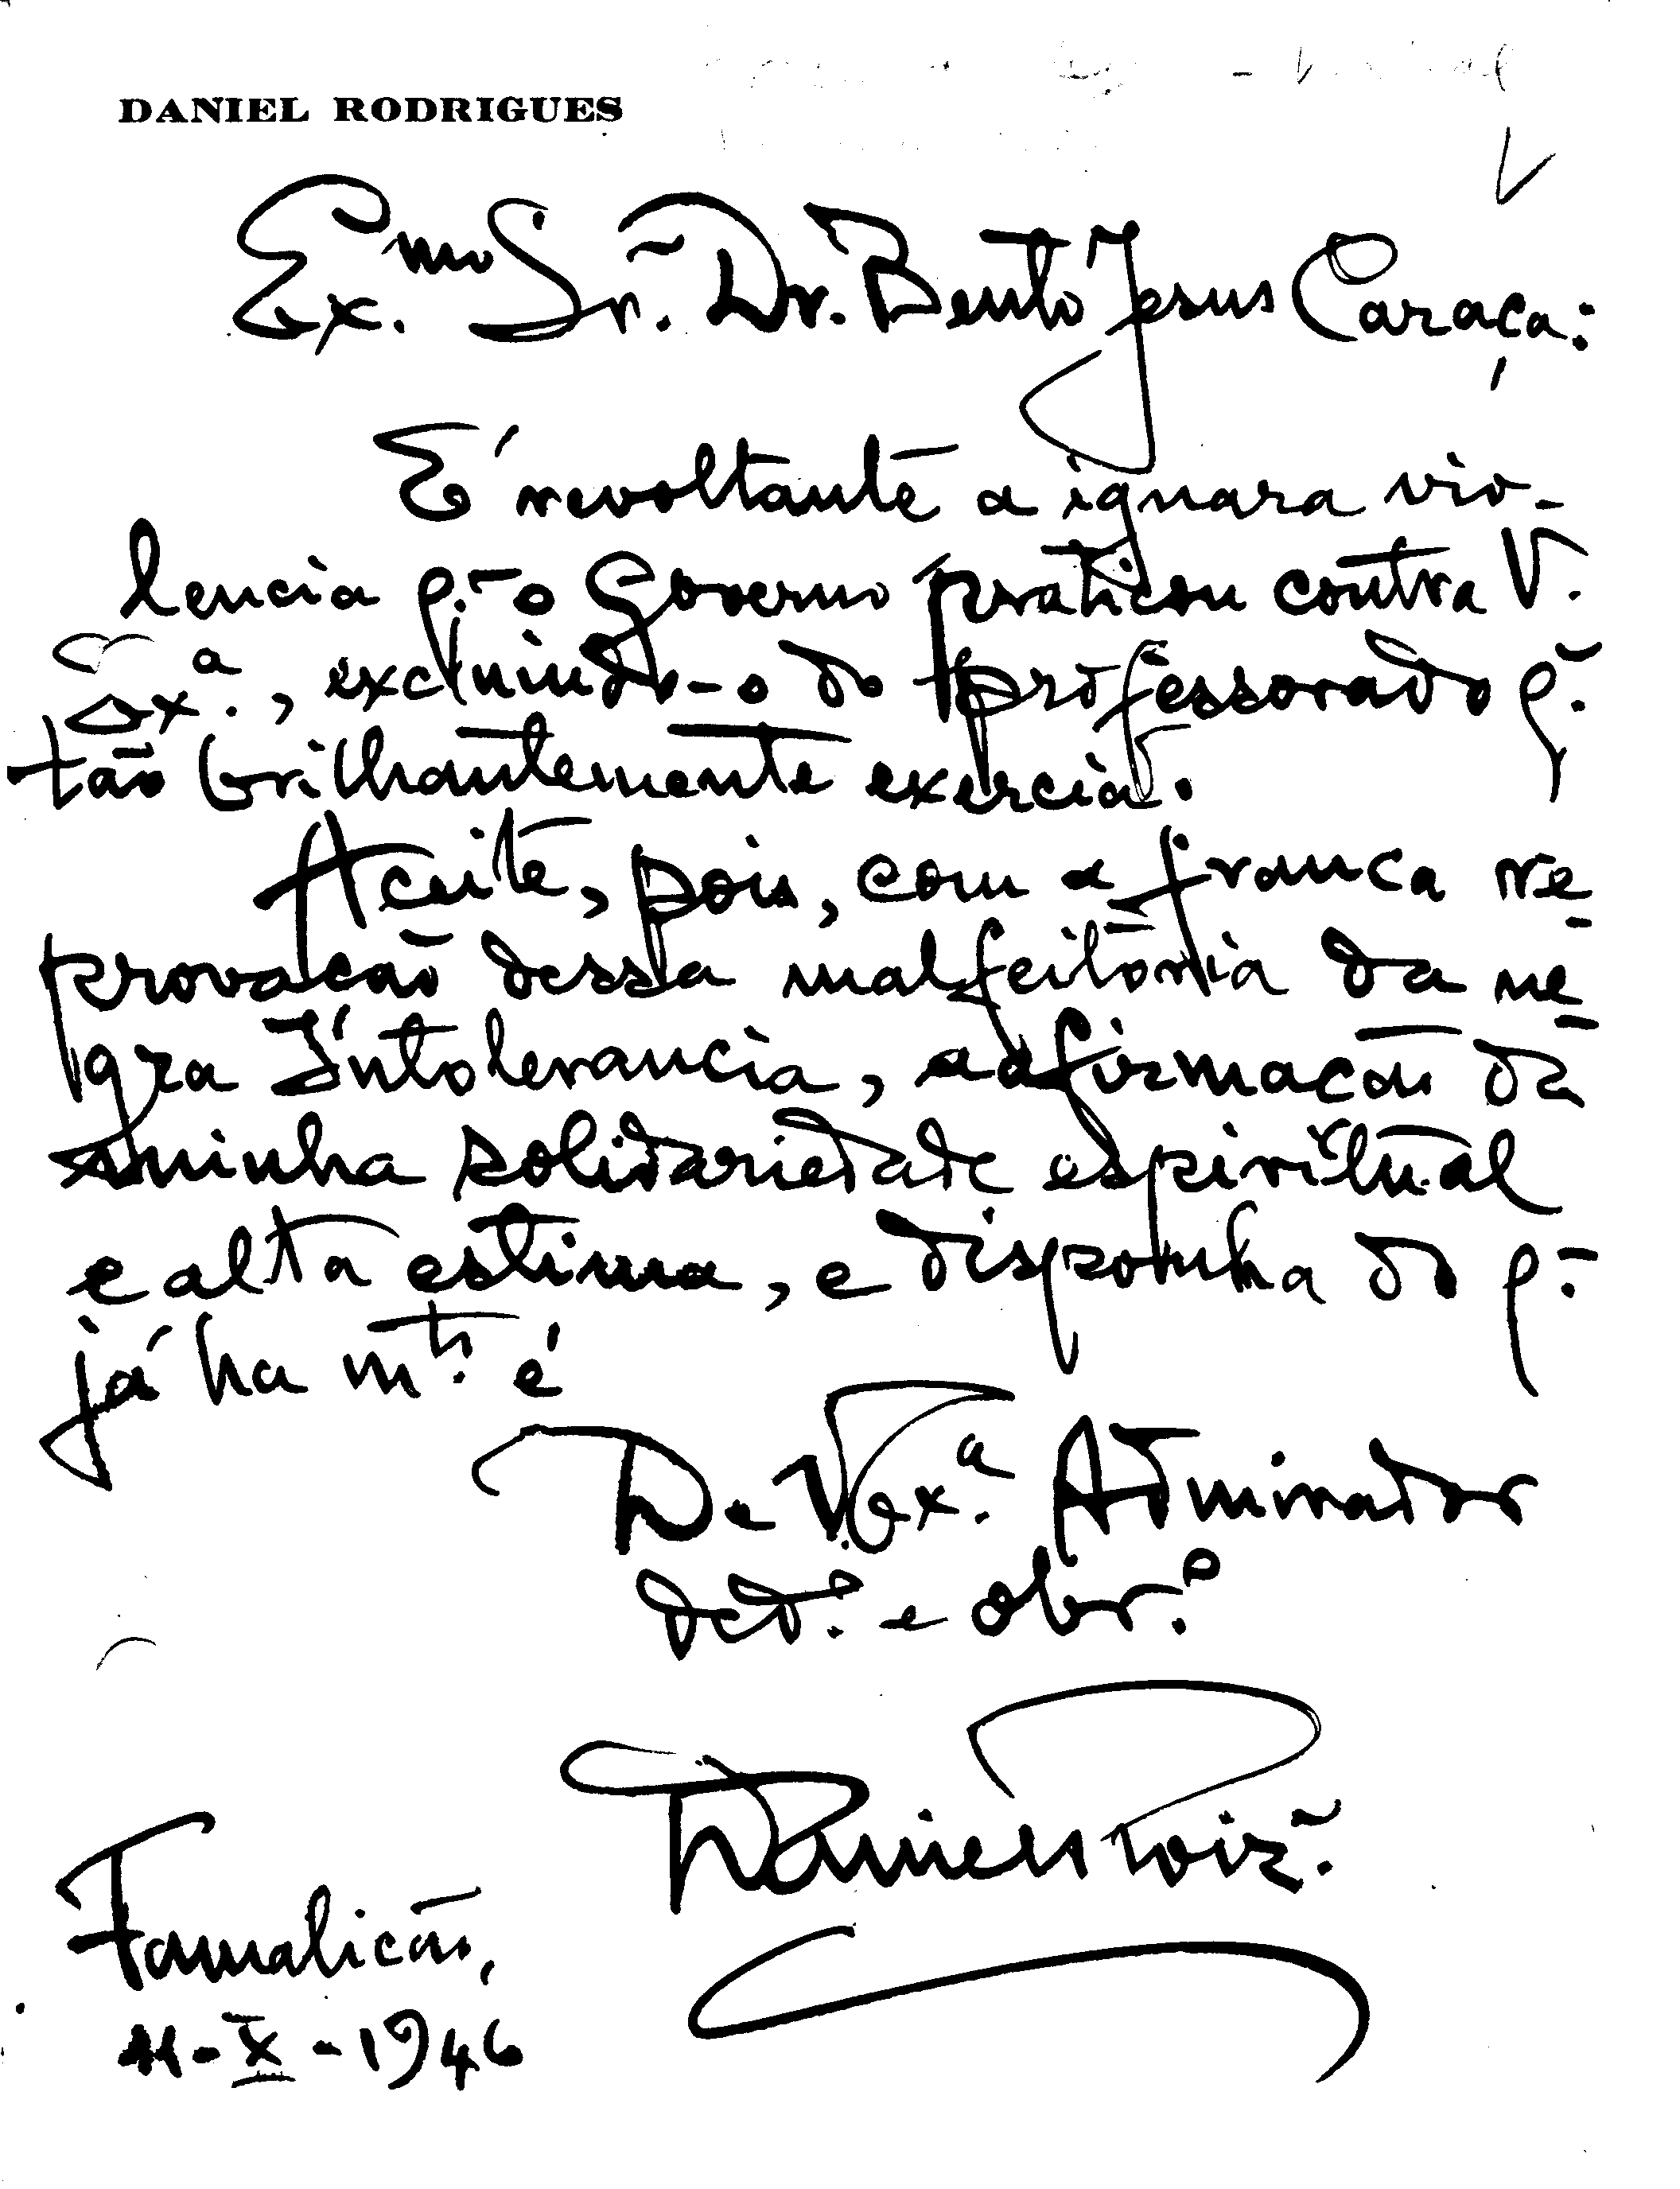 DANIEL RODRIGUES
Ex.mo Sr. Dr. Bento Jesus Caraça:
É revoltante a ignara vio-
lencia q. o Governo praticou contra V.
Ex.a, excluindo-o do professorado q.
tão brilhantemente exercia.
Aceite, pois, com a franca re-
provação dessa malfeitoria da ne-
gra Intolerancia, a afirmação da
minha solidariedade espiritual
e alta estima, e disponha do q.
já ha mto. é
De V. Ex.a Admirador
ded.o e obr.o
Daniel Roiz.
Famalicão,
11-X-1946